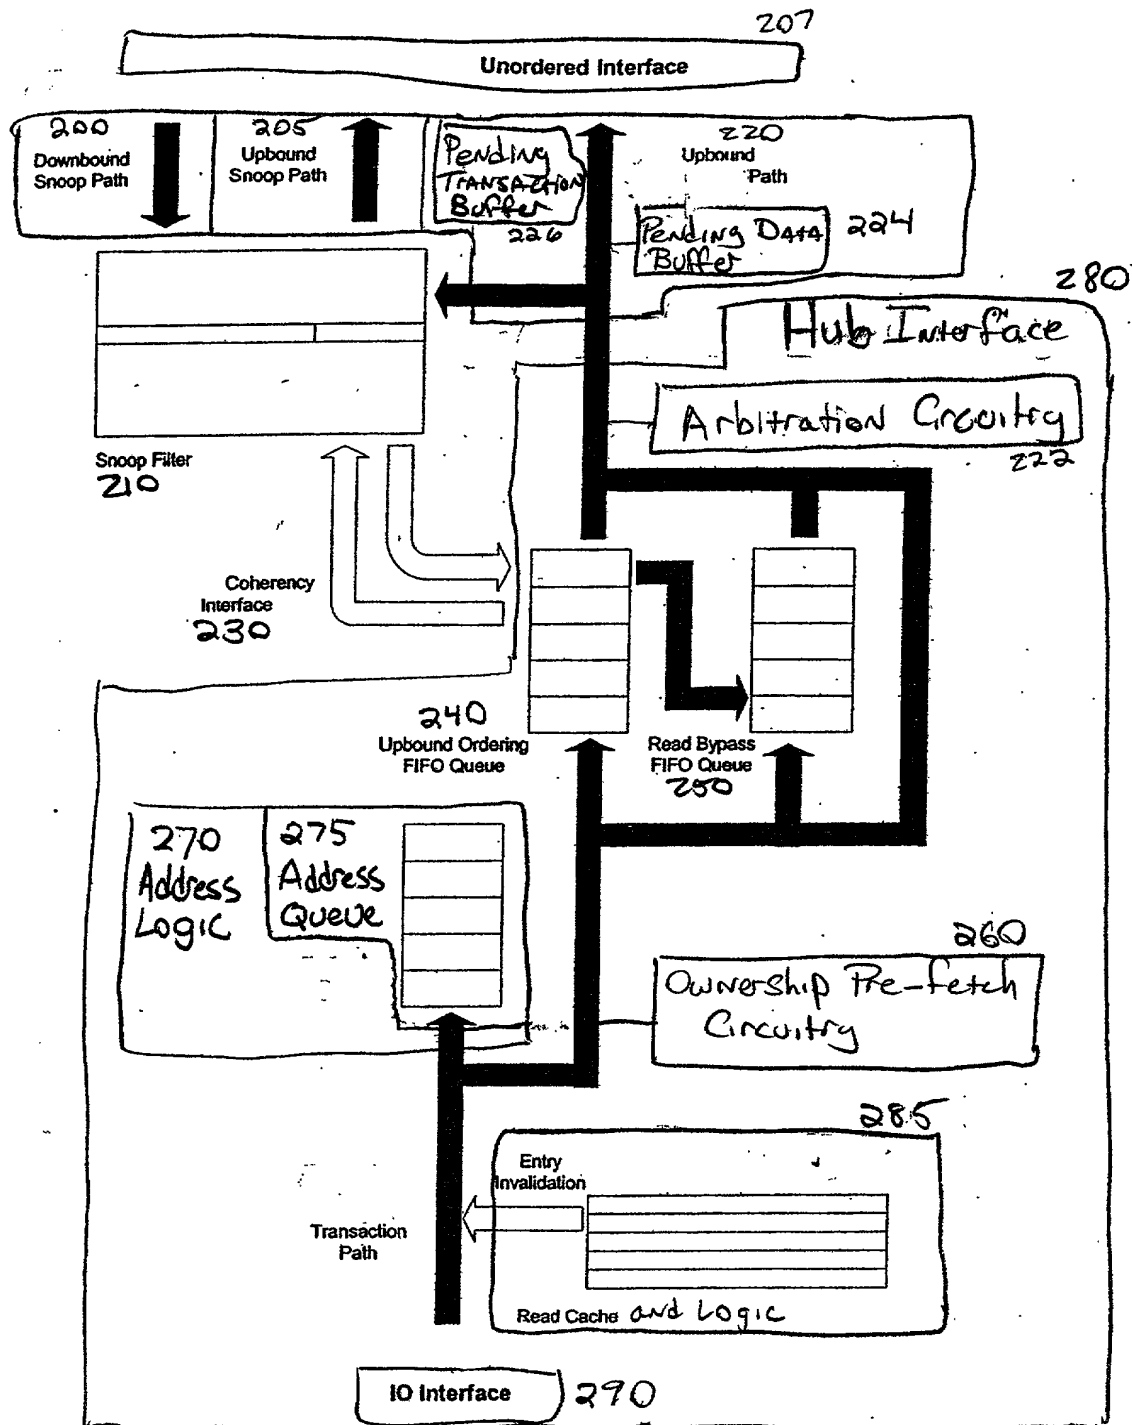 207
Unordered Interface
200
Downbound
Snoop Path
205
Upbound
Snoop Path
Pending
Transaction
Buffer
226
220
Upbound
Path
Pending Data
Buffer
224
280
Hub Interface
Arbitration Circuitry
222
Snoop Filter
210
Coherency
Interface
230
240
Upbound Ordering
FIFO Queue
Read Bypass
FIFO Queue
250
270
Address
Logic
275
Address
Queue
260
Ownership Pre-fetch
Circuitry
285
Entry
Invalidation
Transaction
Path
Read Cache and Logic
IO Interface
290